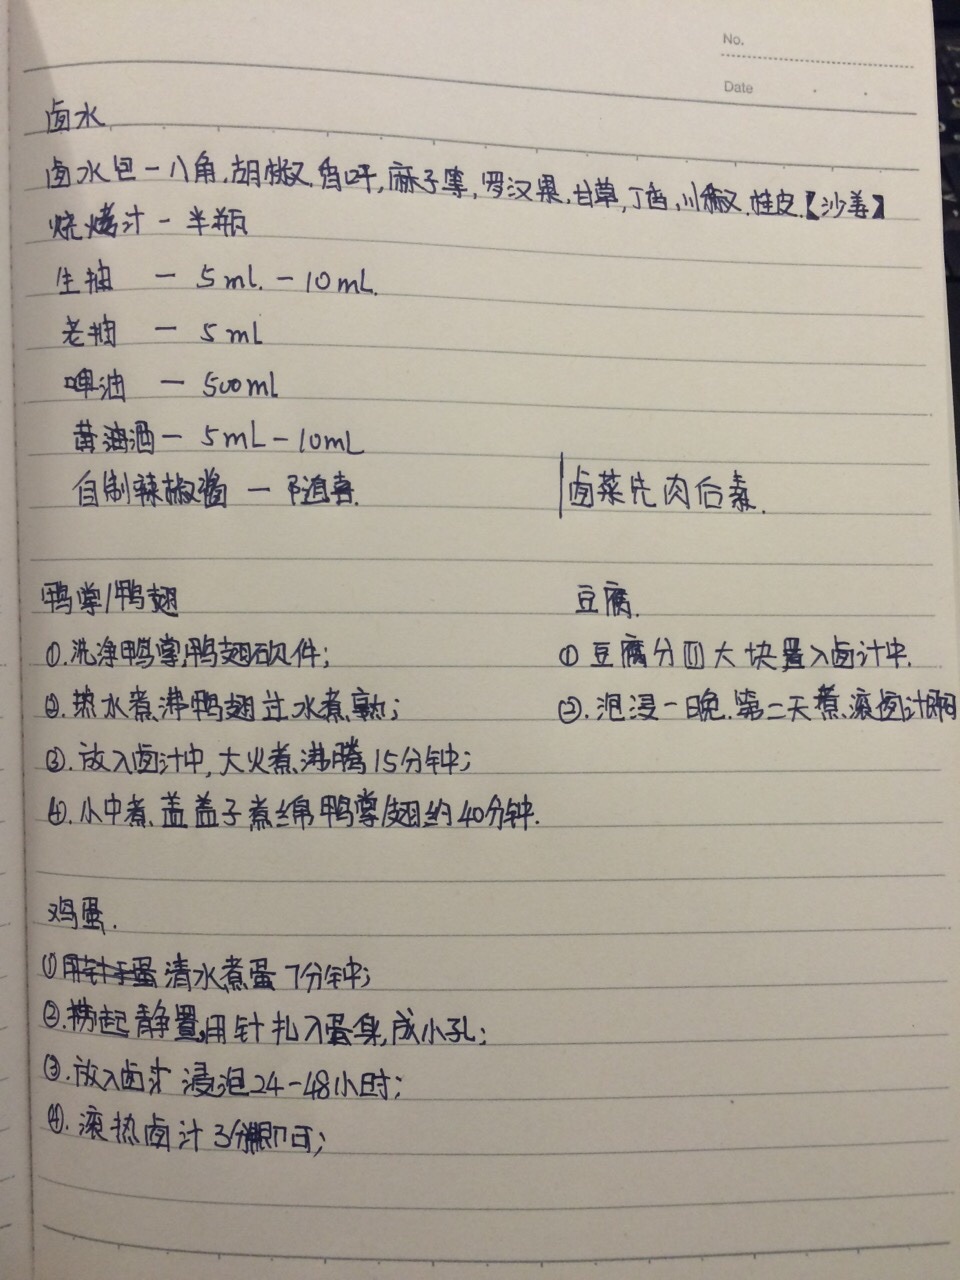 No.
Date
卤水
卤水包－八角,胡椒,香叶,麻子等,罗汉果,甘草,丁香,川椒,桂皮.【沙姜】
烧烤汁－半瓶
生抽 － 5mL.－10mL.
老抽 － 5mL
啤油 － 500mL
黄油酒－ 5mL－10mL
自制辣椒酱 － 随喜.
卤菜先肉后素.
鸭掌/鸭翅
①.洗净鸭掌,鸭翅砍件;
②.热水煮沸鸭翅过水煮熟;
③.放入卤汁中,大火煮沸腾15分钟;
④.小中煮,盖盖子煮绵鸭掌/翅约40分钟.
豆腐.
① 豆腐分四大块置入卤汁中.
②.泡浸一晚.第二天煮滚卤汁即可
鸡蛋.
① 清水煮蛋7分钟;
②.捞起静置,用针扎入蛋身,成小孔;
③.放入卤水浸泡24－48小时;
④.滚热卤汁3分钟即可;